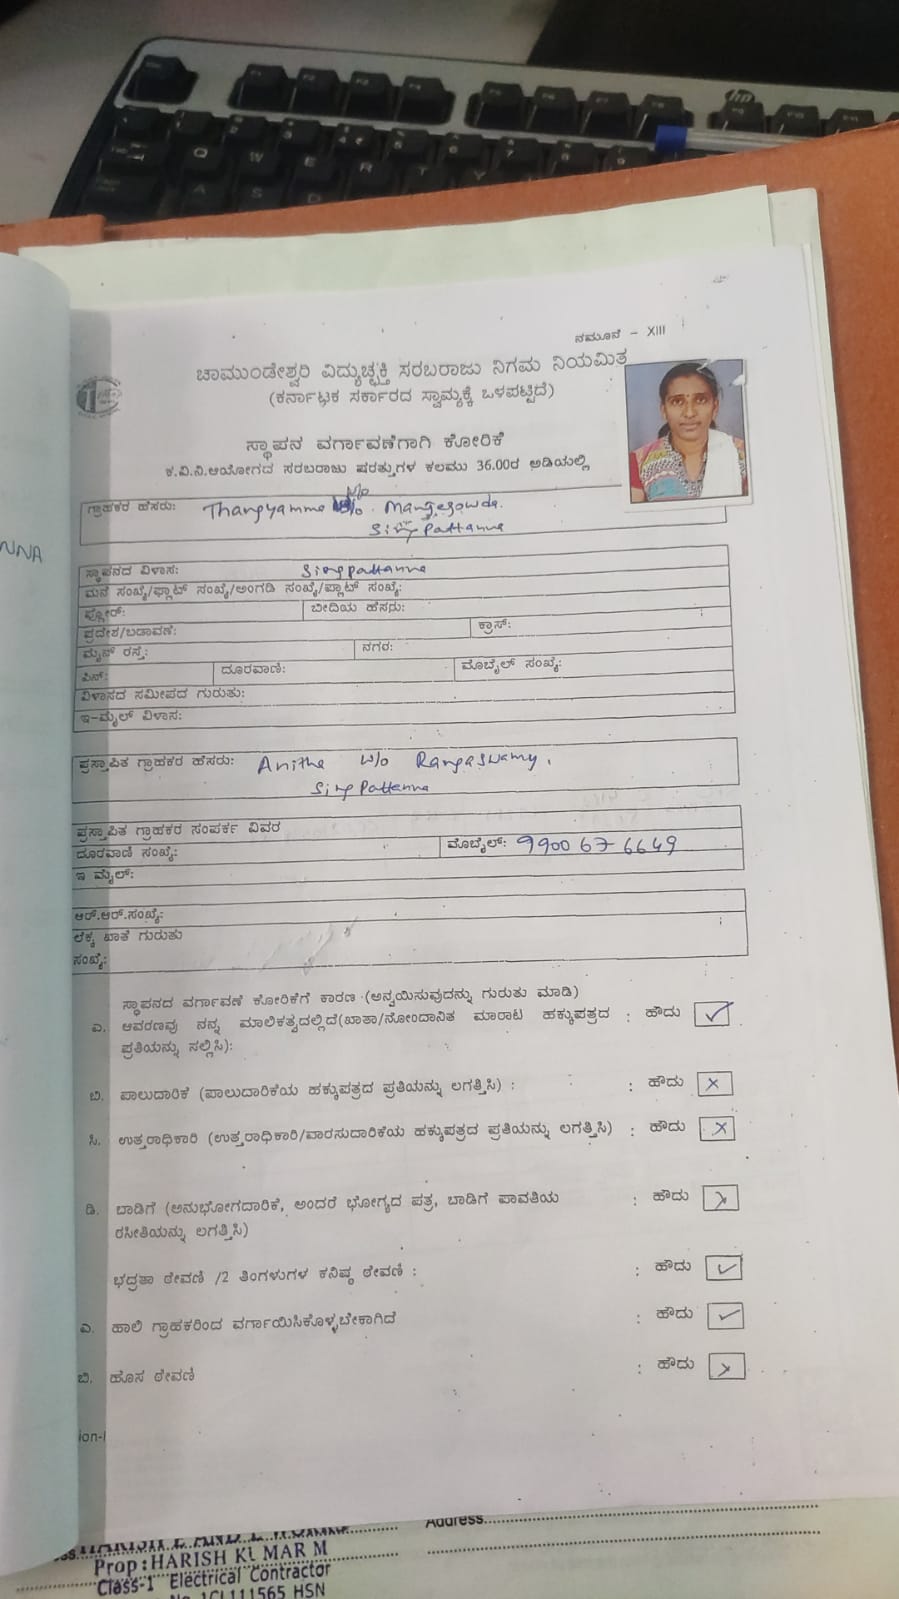 ನಮೂನೆ - XIII
ಚಾಮುಂಡೇಶ್ವರಿ ವಿದ್ಯುಚ್ಛಕ್ತಿ ಸರಬರಾಜು ನಿಗಮ ನಿಯಮಿತ
(ಕರ್ನಾಟಕ ಸರ್ಕಾರದ ಸ್ವಾಮ್ಯಕ್ಕೆ ಒಳಪಟ್ಟಿದೆ)
ಸ್ಥಾಪನ ವರ್ಗಾವಣೆಗಾಗಿ ಕೋರಿಕೆ
ಕ.ವಿ.ನಿ.ಆಯೋಗದ ಸರಬರಾಜು ಷರತ್ತುಗಳ ಕಲಮು 36.00ರ ಅಡಿಯಲ್ಲಿ
ಗ್ರಾಹಕರ ಹೆಸರು: Thangyamma w/o Manjegowda.
NNA
ಸ್ಥಾಪನದ ವಿಳಾಸ:
ಮನೆ ಸಂಖ್ಯೆ/ಫ್ಲಾಟ್ ಸಂಖ್ಯೆ/ಅಂಗಡಿ ಸಂಖ್ಯೆ/ಪ್ಲಾಟ್ ಸಂಖ್ಯೆ:
ಫ್ಲೋರ್: ಬೀದಿಯ ಹೆಸರು:
ಪ್ರದೇಶ/ಬಡಾವಣೆ: ಕ್ರಾಸ್:
ಮೈನ್ ರಸ್ತೆ: ನಗರ:
ಪಿನ್: ದೂರವಾಣಿ: ಮೊಬೈಲ್ ಸಂಖ್ಯೆ:
ವಿಳಾಸದ ಸಮೀಪದ ಗುರುತು:
ಇ-ಮೈಲ್ ವಿಳಾಸ:
ಪ್ರಸ್ತಾಪಿತ ಗ್ರಾಹಕರ ಹೆಸರು: Anitha w/o Rangaswamy,
ಪ್ರಸ್ತಾಪಿತ ಗ್ರಾಹಕರ ಸಂಪರ್ಕ ವಿವರ
ದೂರವಾಣಿ ಸಂಖ್ಯೆ: ಮೊಬೈಲ್: 9900 67 6649
ಇ ಮೈಲ್:
ಆರ್.ಆರ್.ಸಂಖ್ಯೆ:
ಲೆಕ್ಕ ಖಾತೆ ಗುರುತು
ಸಂಖ್ಯೆ:
ಸ್ಥಾಪನದ ವರ್ಗಾವಣೆ ಕೋರಿಕೆಗೆ ಕಾರಣ (ಅನ್ವಯಿಸುವುದನ್ನು ಗುರುತು ಮಾಡಿ)
ಎ. ಆವರಣವು ನನ್ನ ಮಾಲಿಕತ್ವದಲ್ಲಿದೆ(ಖಾತಾ/ನೋಂದಾನಿತ ಮಾರಾಟ ಹಕ್ಕುಪತ್ರದ : ಹೌದು ✓
ಪ್ರತಿಯನ್ನು ಸಲ್ಲಿಸಿ):
ಬಿ. ಪಾಲುದಾರಿಕೆ (ಪಾಲುದಾರಿಕೆಯ ಹಕ್ಕುಪತ್ರದ ಪ್ರತಿಯನ್ನು ಲಗತ್ತಿಸಿ) : : ಹೌದು ×
ಸಿ. ಉತ್ತರಾಧಿಕಾರಿ (ಉತ್ತರಾಧಿಕಾರಿ/ವಾರಸುದಾರಿಕೆಯ ಹಕ್ಕುಪತ್ರದ ಪ್ರತಿಯನ್ನು ಲಗತ್ತಿಸಿ) : ಹೌದು ×
ಡಿ. ಬಾಡಿಗೆ (ಅನುಭೋಗದಾರಿಕೆ, ಅಂದರೆ ಭೋಗ್ಯದ ಪತ್ರ, ಬಾಡಿಗೆ ಪಾವತಿಯ : ಹೌದು ×
ರಸೀತಿಯನ್ನು ಲಗತ್ತಿಸಿ)
ಭದ್ರತಾ ಠೇವಣಿ /2 ತಿಂಗಳುಗಳ ಕನಿಷ್ಠ ಠೇವಣಿ : : ಹೌದು ✓
ಎ. ಹಾಲಿ ಗ್ರಾಹಕರಿಂದ ವರ್ಗಾಯಿಸಿಕೊಳ್ಳಬೇಕಾಗಿದೆ : ಹೌದು ✓
ಬಿ. ಹೊಸ ಠೇವಣಿ : ಹೌದು ×
ion-I
Address
Prop:HARISH KUMAR M
Class-1 Electrical Contractor
No 1CL111565 HSN